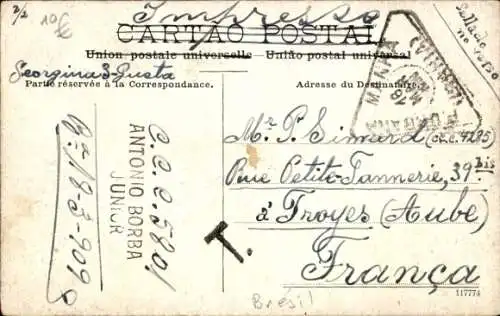 2/2
10f
Impresso
CARTÃO POSTAL
Union postale universelle União postal universal
Georgina S. Justa
Partie réservée à la Correspondance.
Adresse du Destinataire.
Mr. P. Simard (C.C.C. 4285)
Rue Petite Tannerie, 39 bis
à Troyes (Aube)
França
C.C.C. 5801
ANTONIO BORBA
JUNIOR
18-3-909
T.
Brésil
117774